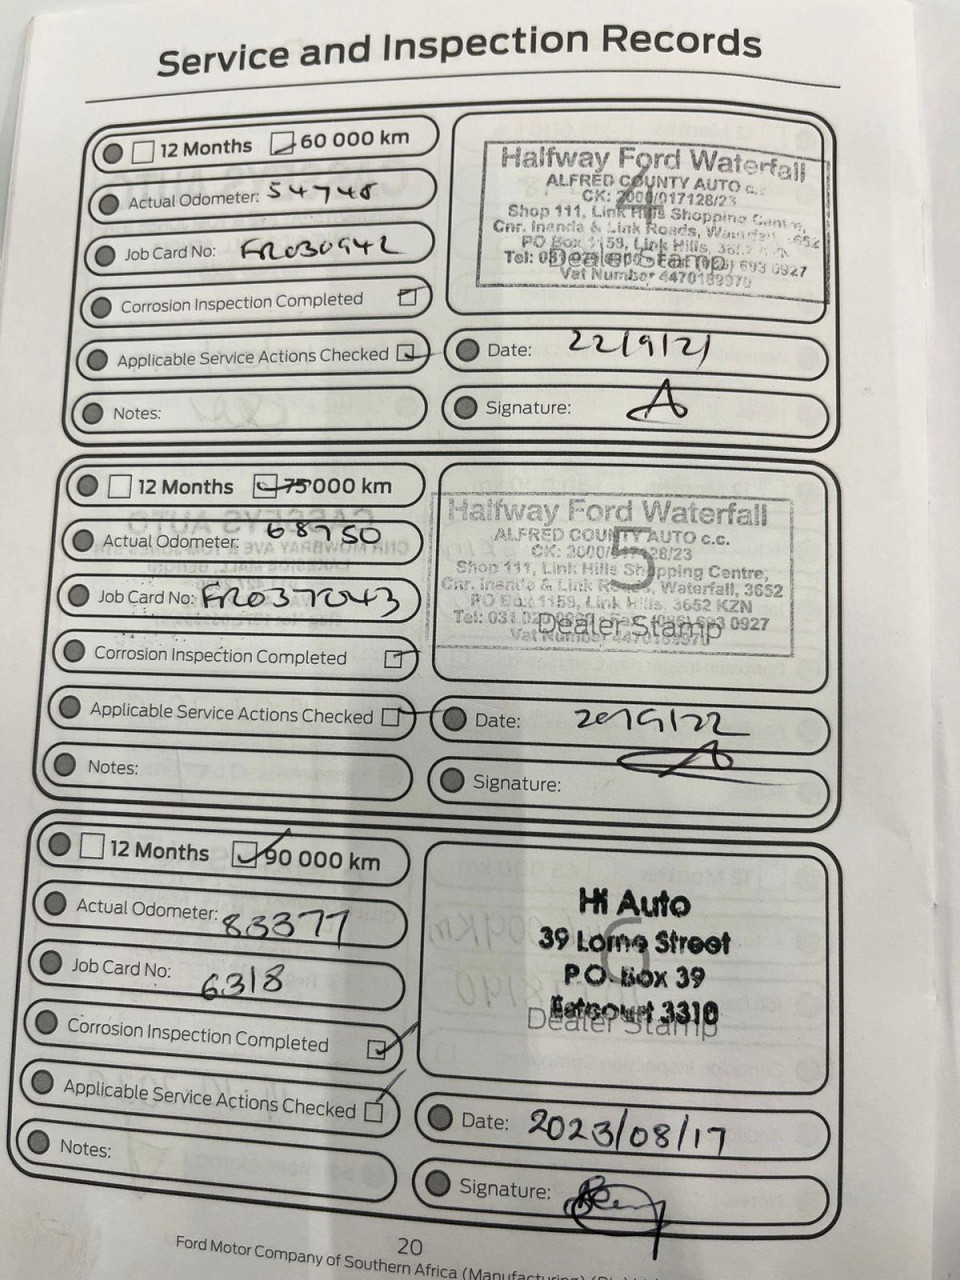 Service and Inspection Records
12 Months 60 000 km
Actual Odometer: 54748
Job Card No: FR030942
Corrosion Inspection Completed
Applicable Service Actions Checked
Notes:
4
Halfway Ford Waterfall
ALFRED COUNTY AUTO c.
CK: 2000/017128/23
Shop 111, Link Hills Shopping Centre,
Cnr. Inanda & Link Roads,
PO Box 1159, Link Hills,
Tel: 693 0927
Vat Number 4470189970
Dealer Stamp
Date: 22/9/21
Signature:
12 Months 75 000 km
Actual Odometer: 68750
Job Card No: FR037043
Corrosion Inspection Completed
Applicable Service Actions Checked
Notes:
5
Halfway Ford Waterfall
ALFRED COUNTY AUTO c.c.
CK: 2000/017128/23
Shop 111, Link Hills Shopping Centre,
Cnr. Inanda & Link Roads, Waterfall, 3652
PO Box 1159, Link Hills, 3652 KZN
Tel: 031 Fax: (086) 693 0927
Vat Number 4470189970
Dealer Stamp
Date:
Signature:
12 Months 90 000 km
Actual Odometer: 83377
Job Card No: 6318
Corrosion Inspection Completed
Applicable Service Actions Checked
Notes:
6
Hi Auto
39 Lorne Street
P.O. Box 39
Estcourt 3310
Dealer Stamp
Date: 2023/08/17
Signature:
20
Ford Motor Company of Southern Africa (Manufacturing)